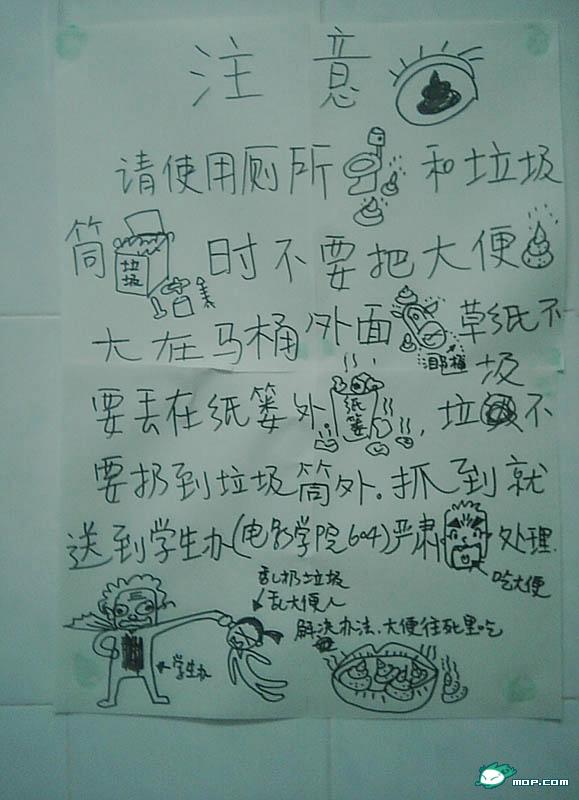 注意
请使用厕所和垃圾
筒垃圾时不要把大便
大在马桶外面草纸不
马桶
要丢在纸篓外纸篓,垃圾不
要扔到垃圾筒外.抓到就
送到学生办(电影学院604)严肃处理.
吃大便
乱扔垃圾
乱大便人
解决办法.大便往死里吃
学生办
MOP.COM